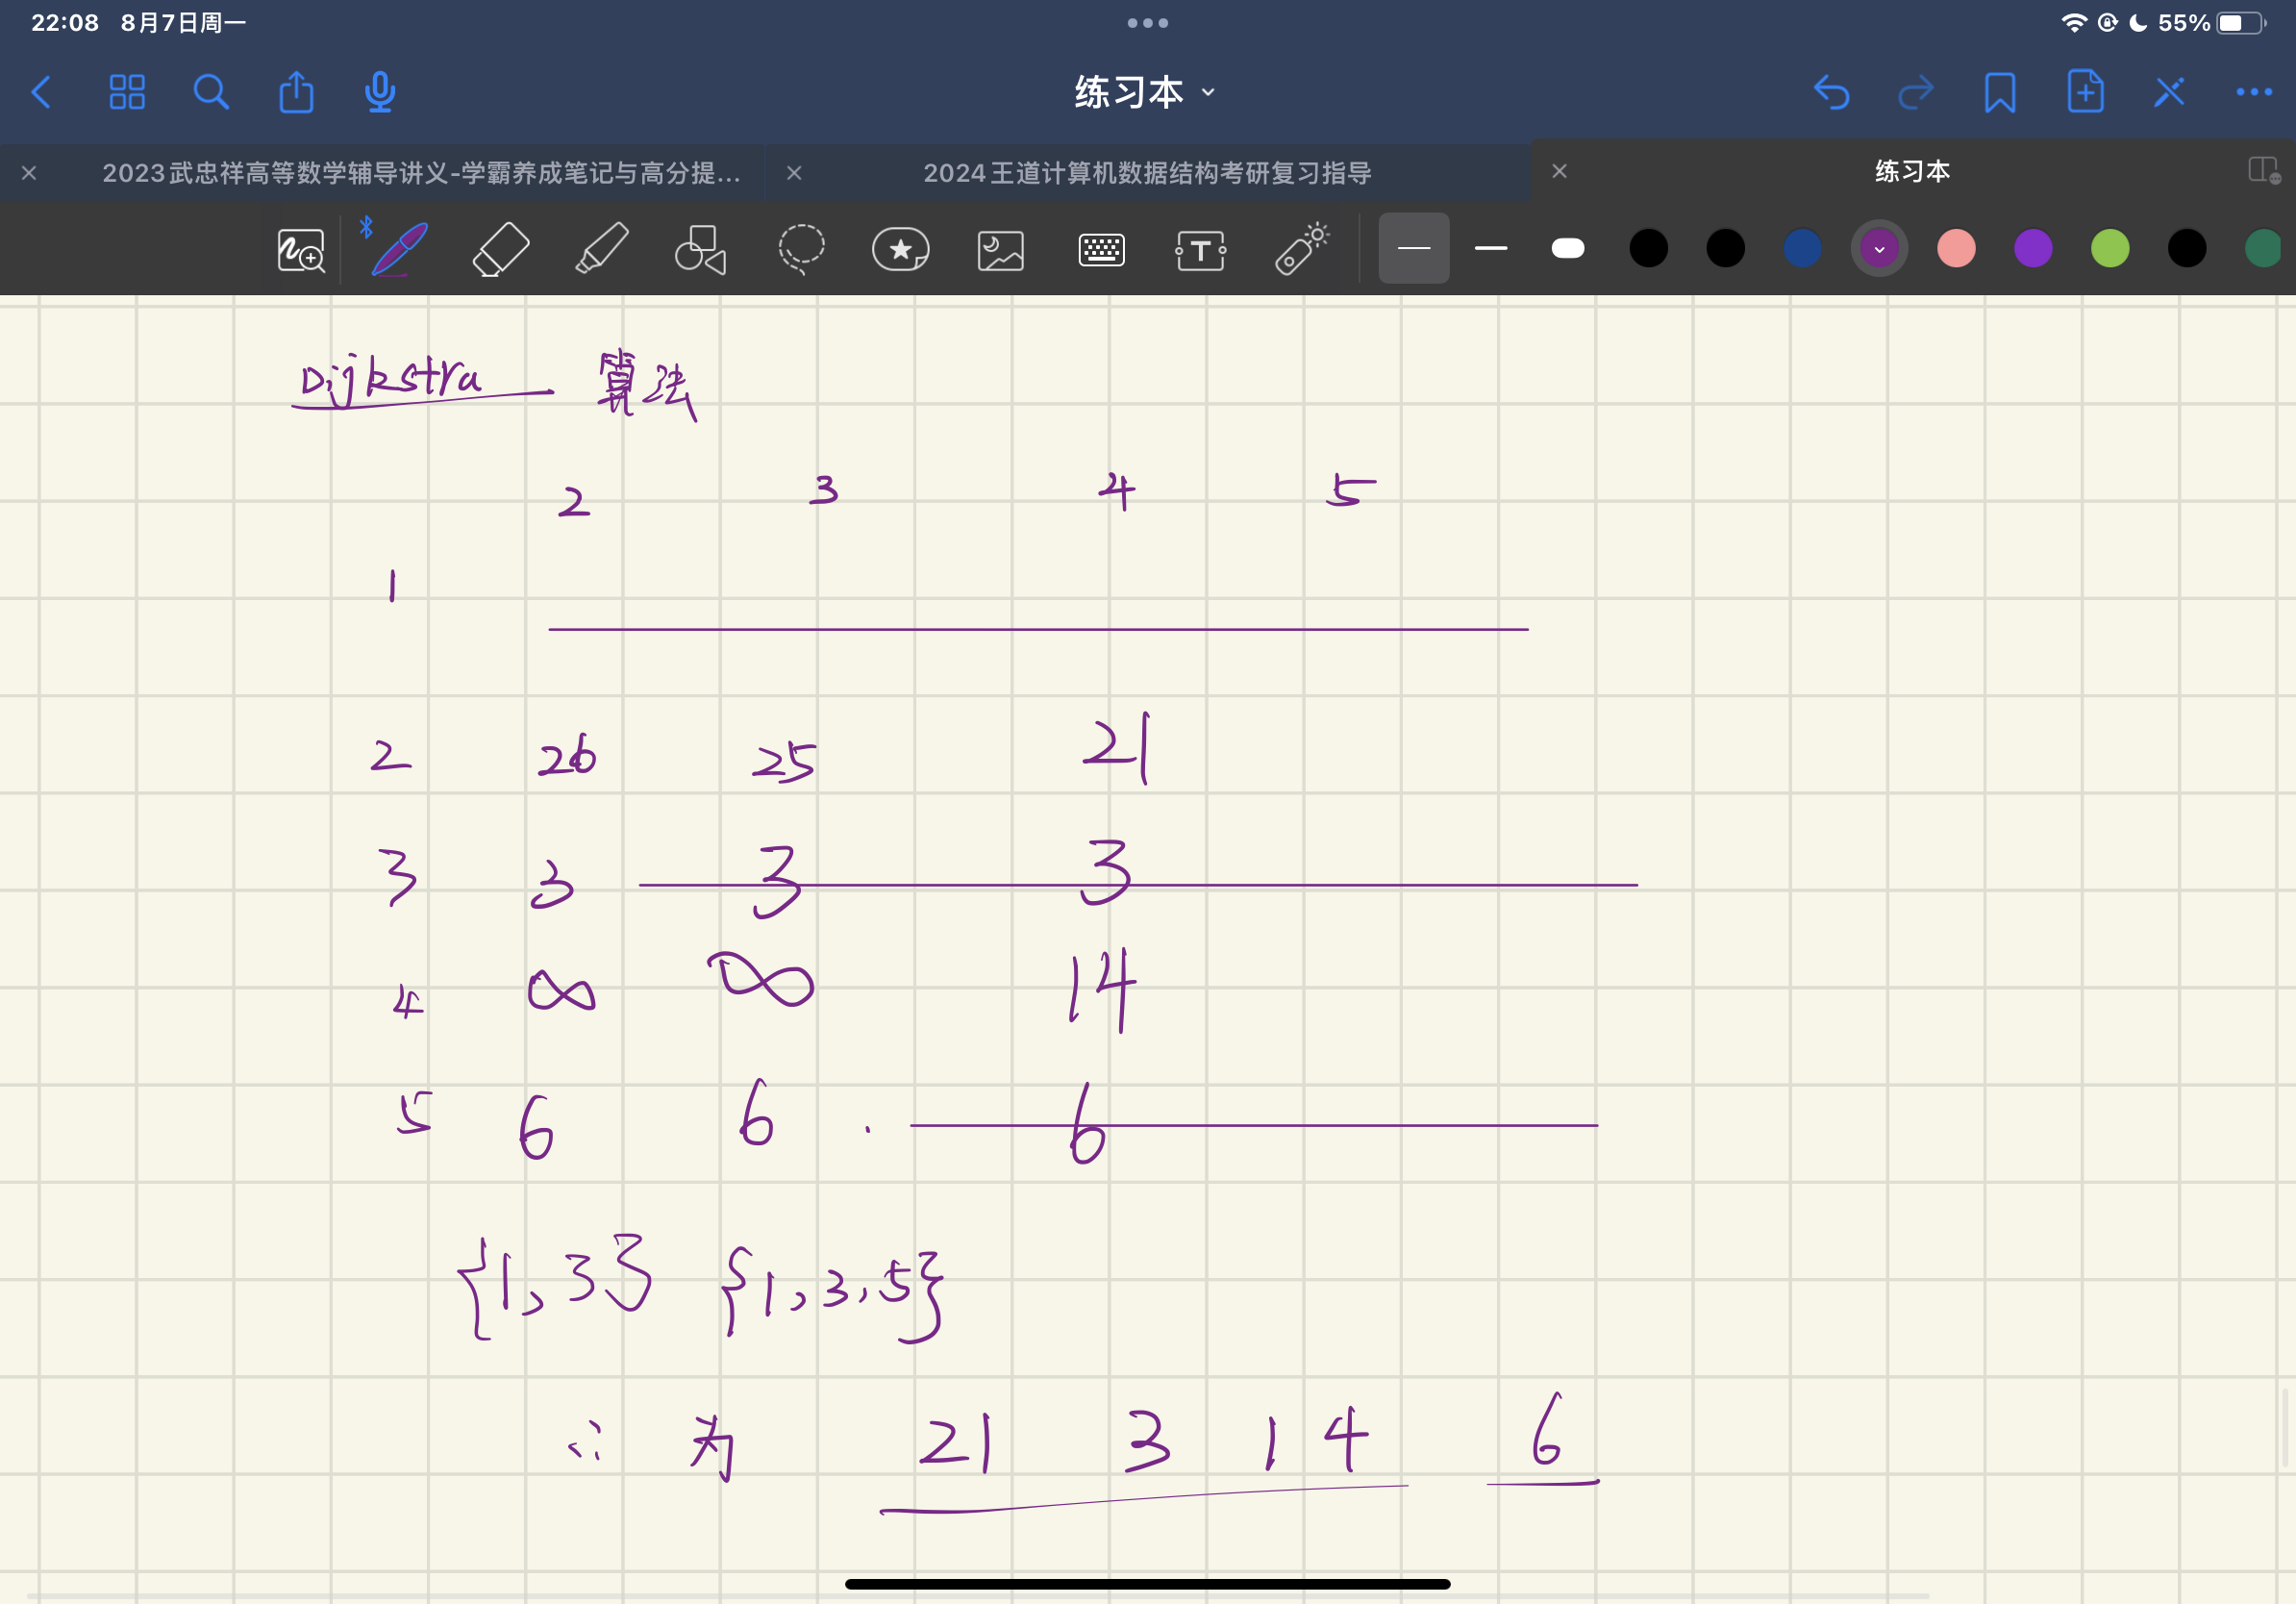 22:08 8月7日周一
55%
练习本
2023武忠祥高等数学辅导讲义-学霸养成笔记与高分提...
2024王道计算机数据结构考研复习指导
练习本
T
Dijkstra 算法
2 3 4 5
1
2 26 25 21
3 3 3 3
4 ∞ ∞ 14
5 6 6 . 6
{1,3} {1,3,5}
∴ 为 21 3 14 6